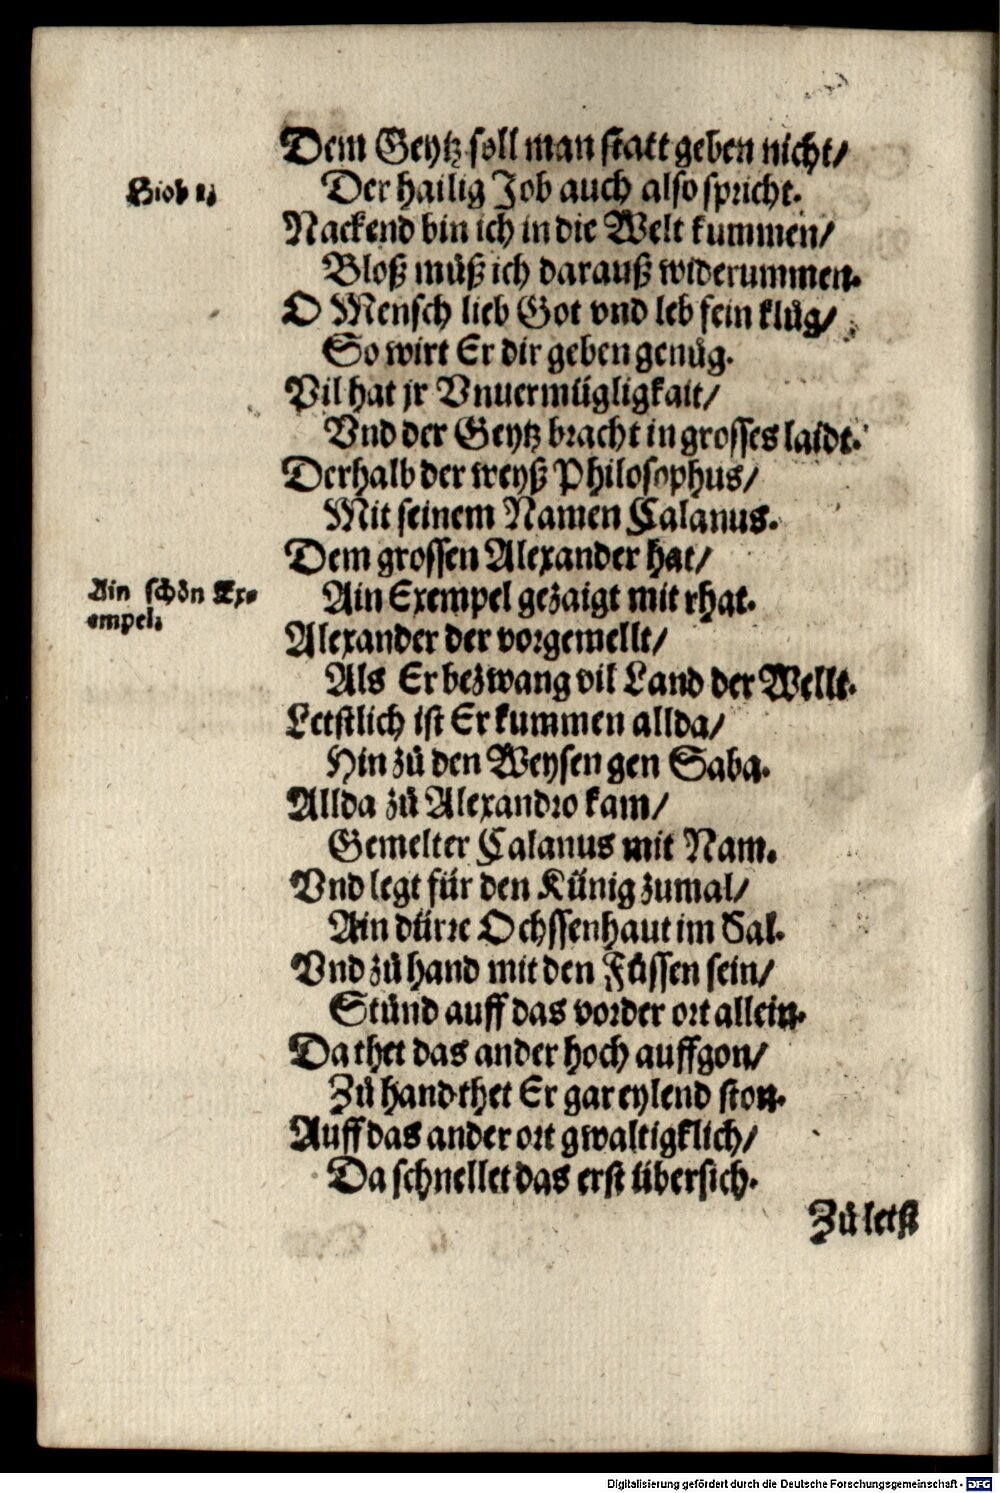 Dem Geytz soll man statt geben nicht/
Hiob 1.
Der hailig Job auch also spricht.
Nackend bin ich in die Welt kummen/
Bloß muͤß ich darauß widerummen.
O Mensch lieb Got vnd leb fein kluͤg/
So wirt Er dir geben genuͤg.
Vil hat jr Vnuermügligkait/
Vnd der Geytz bracht in grosses laidt.
Derhalb der weyß Philosophus/
Mit seinem Namen Calanus.
Dem grossen Alexander hat/
Ain schoͤn Ex-
empel.
Ain Exempel gezaigt mit rhat.
Alexander der vorgemellt/
Als Er bezwang vil Land der Wellt.
Letstlich ist Er kummen allda/
Hin zuͤ den Weysen gen Saba.
Allda zuͤ Alexandro kam/
Gemelter Calanus mit Nam.
Vnd legt für den Künig zumal/
Ain dürre Ochssenhaut im Sal.
Vnd zuͤ hand mit den Fuͤssen sein/
Stuͤnd auff das vorder ort allein.
Da thet das ander hoch auffgon/
Zuͤ hand thet Er gar eylend ston.
Auff das ander ort gwaltigklich/
Da schnellet das erst übersich.
Zuͤ letst
Digitalisierung gefördert durch die Deutsche Forschungsgemeinschaft - DFG